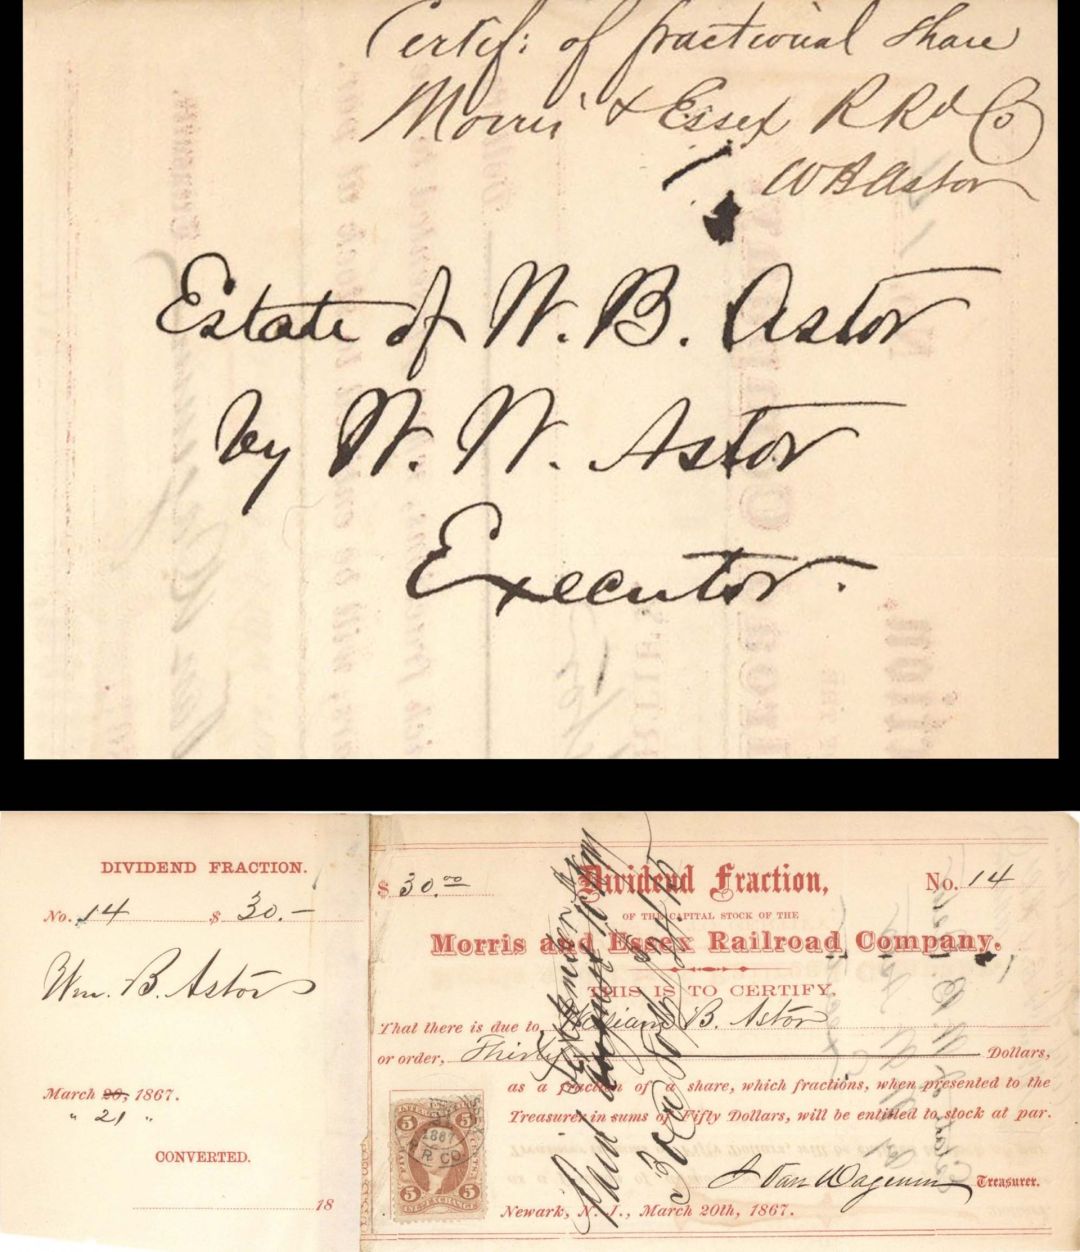 Certif: of fractional share
Morris & Essex R Rd Co
W B Astor
Estate of W. B. Astor
by W. W. Astor
Executor.
DIVIDEND FRACTION.
No. 14 $ 30.–
Wm. B. Astor
March 20, 1867.
" 21 "
CONVERTED.
18
$ 30.00 Dividend Fraction, No. 14
OF THE CAPITAL STOCK OF THE
Morris and Essex Railroad Company.
THIS IS TO CERTIFY,
That there is due to William B. Astor
or order, Thirty Dollars,
as a fraction of a share, which fractions, when presented to the
Treasurer in sums of Fifty Dollars, will be entitled to stock at par.
Van Wagenen Treasurer.
Newark, N. J., March 20th, 1867.
5 5
1867
R. CO.
5 5
INT. EXCHANGE